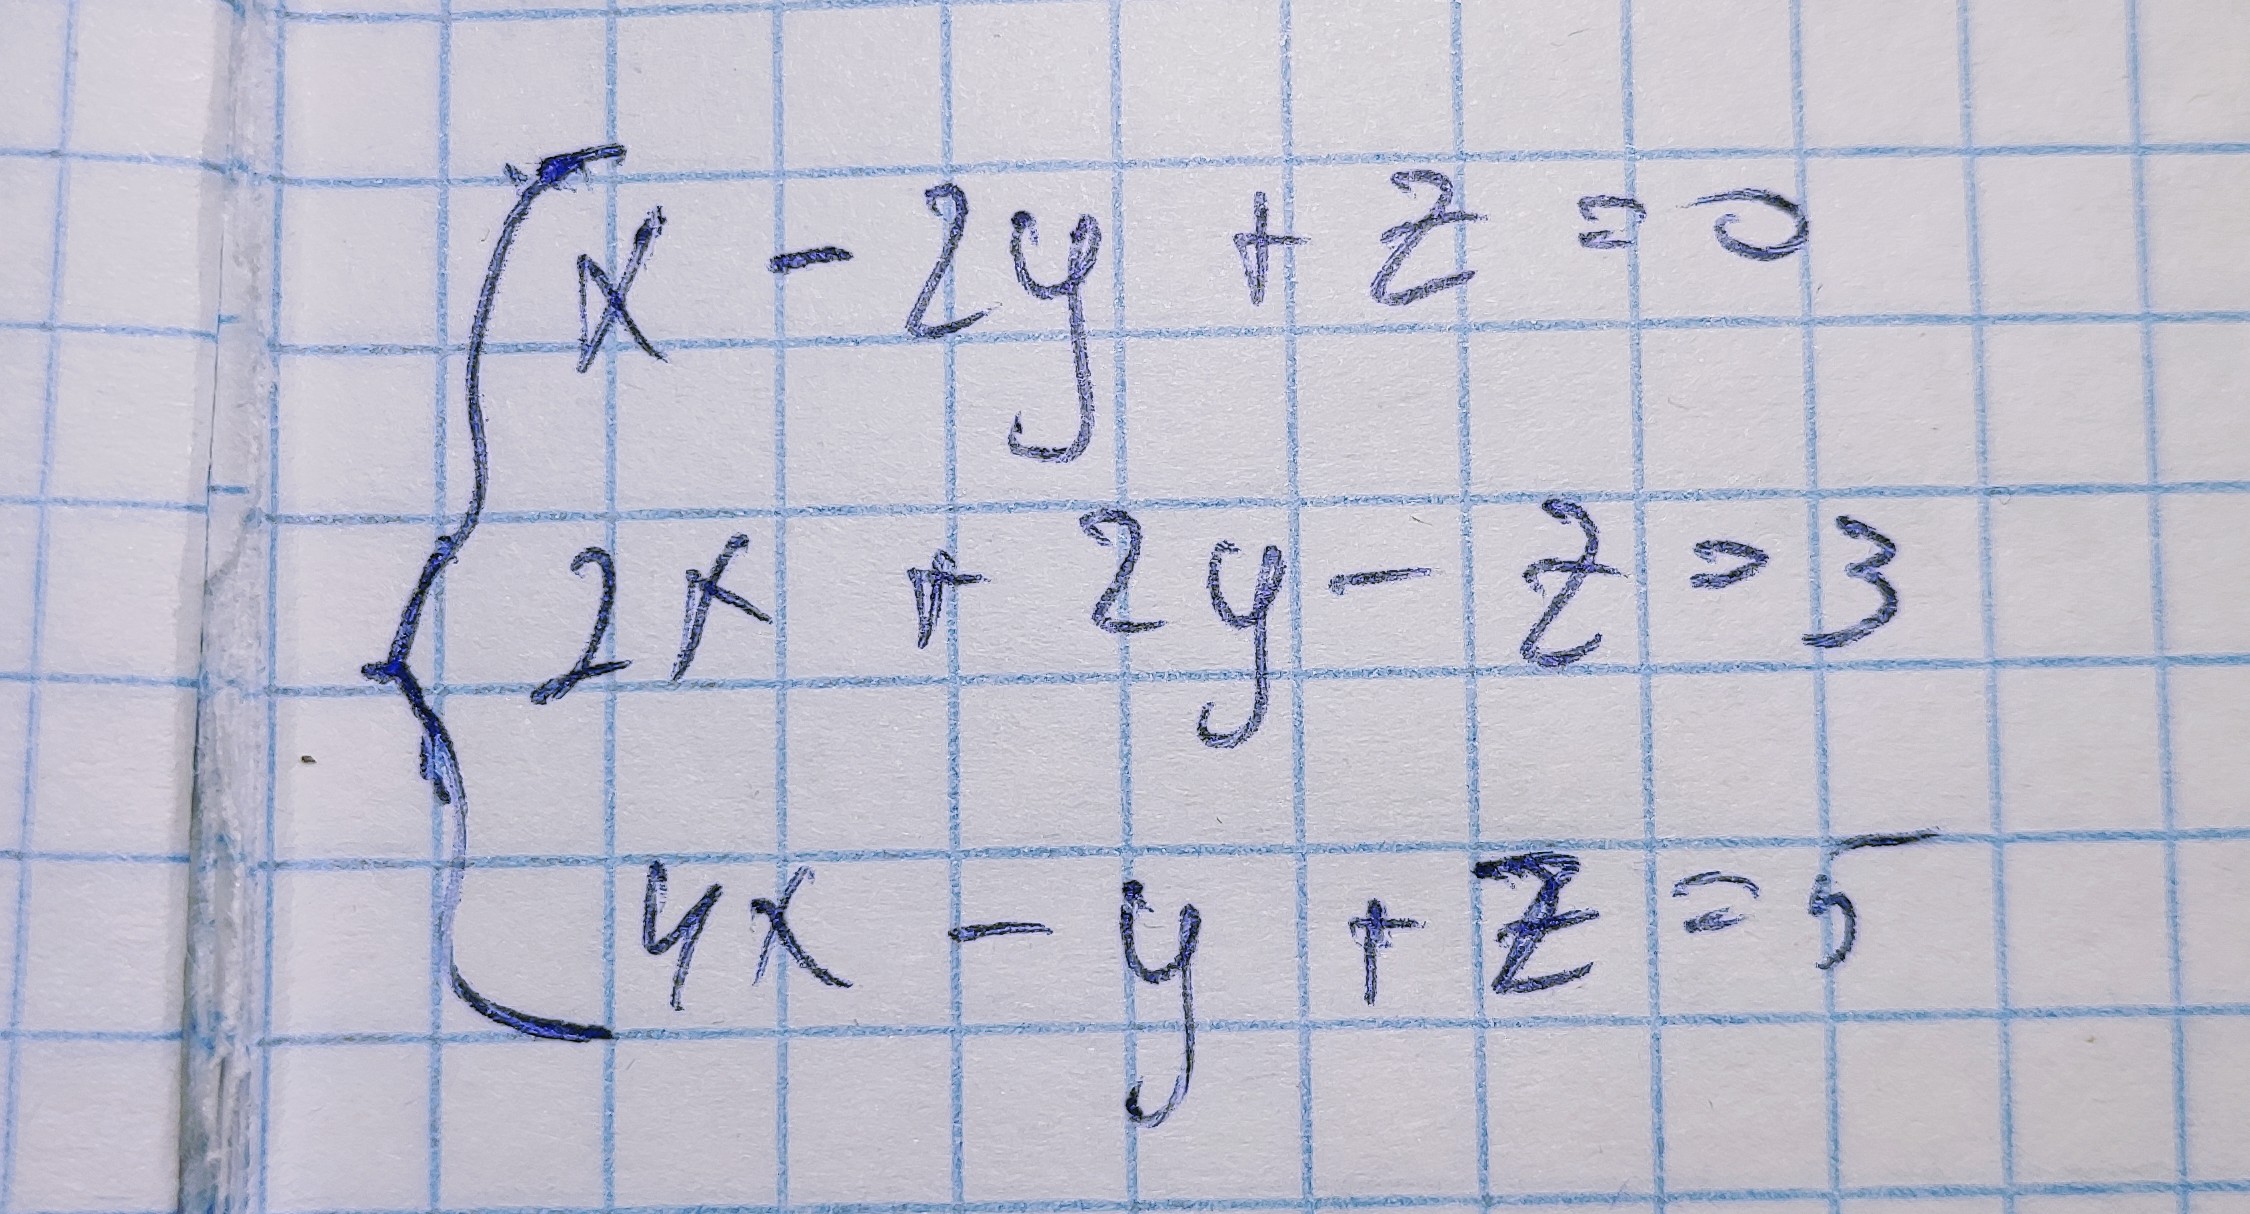 x - 2y + z = 0
2x + 2y - z = 3
4x - y + z = 5